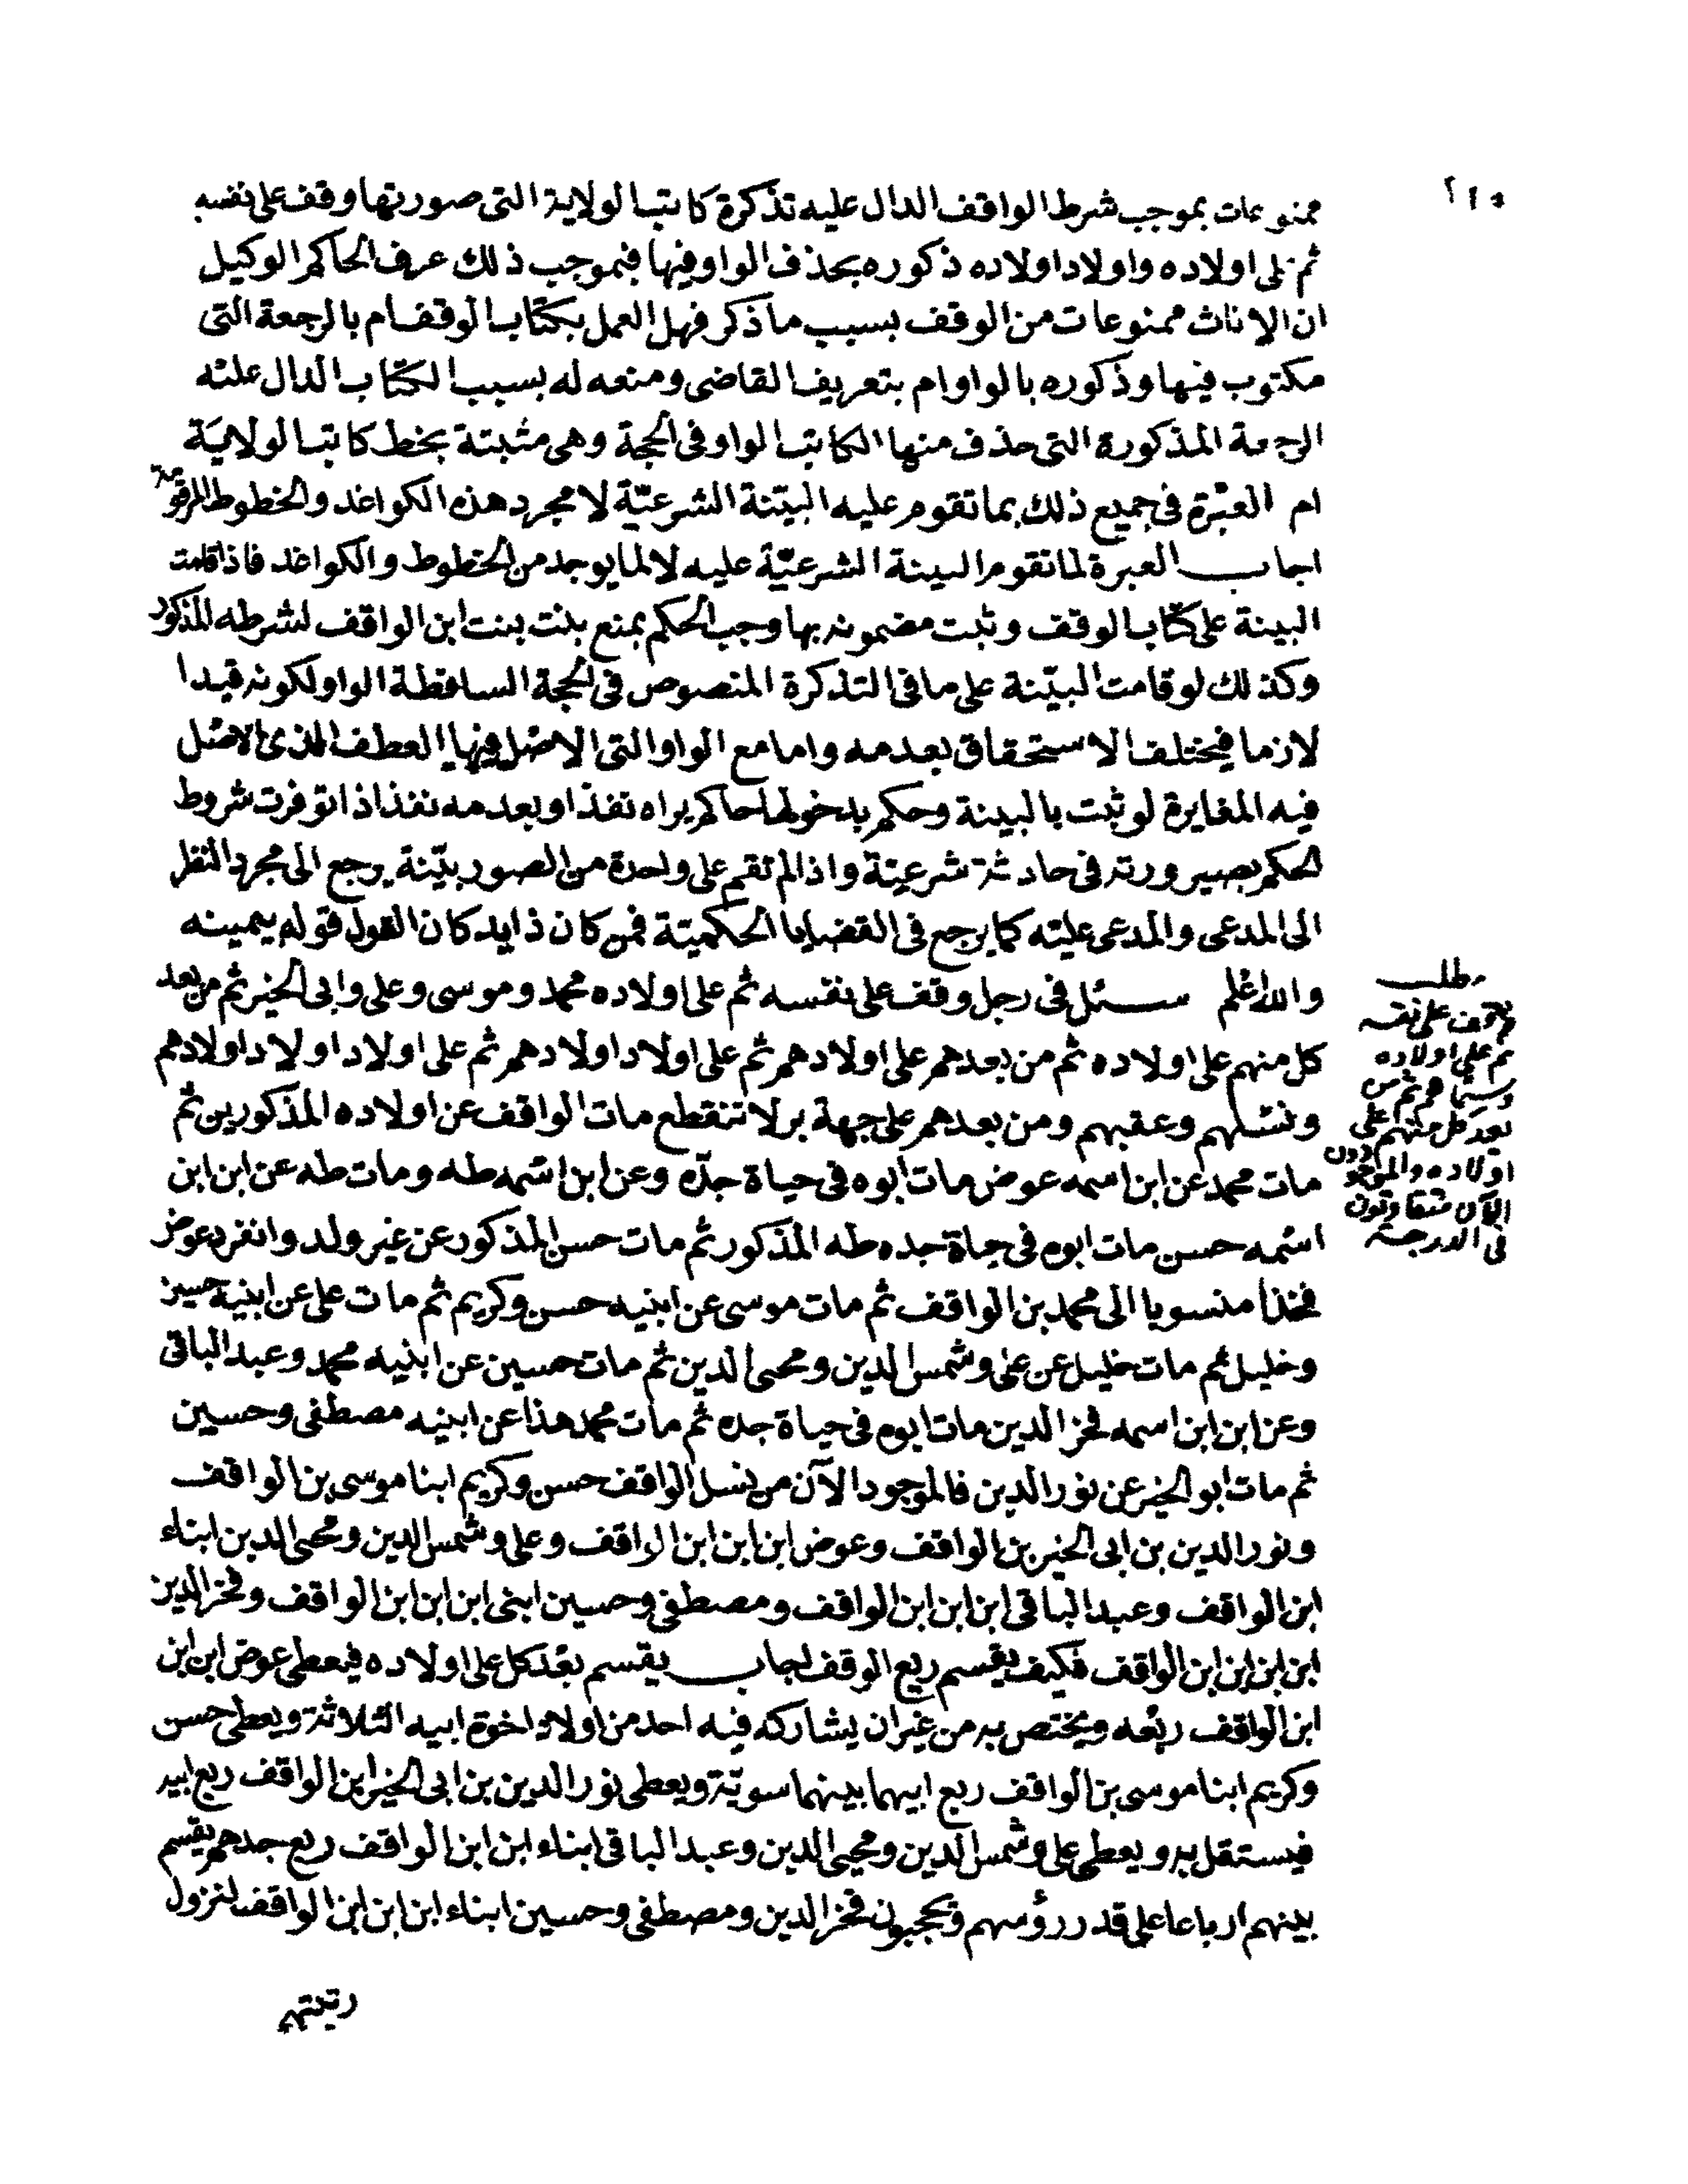 ٢١٥
ممنوعات بموجب شرط الواقف الدال عليه تذكرة كاتب الولاية التى صورتها وقف على نفسه
ثم على اولاده واولاد اولاده ذكوره بحذف الواو فيها فبموجب ذلك عرف الحاكم الوكيل
ان الاناث ممنوعات من الوقف بسبب ما ذكر فهل العمل بكتاب الوقف ام بالرجعة التى
مكتوب فيها وذكوره بالواو ام بتعريف القاضى ومنعه له بسبب الكتاب الدال عليه
الرجعة المذكورة التى حذف منها الكاتب الواو فى الحجة وهى مثبتة بخط كاتب الولاية
ام العبرة فى جميع ذلك بما تقوم عليه البينة الشرعية لا مجرد هذه الكواغد والخطوط المرقومة
اجاب العبرة لما تقوم البينة الشرعية عليه لا لما يوجد من الخطوط والكواغد فاذا قامت
البينة على كتاب الوقف وثبت مضمونه بها وجب الحكم بمنع بنت بنت ابن الواقف لشرطه المذكور
وكذلك لو قامت البينة على ما فى التذكرة المنصوص فى الحجة الساقطة الواو لكونه قيدا
لازما فيختلف الاستحقاق بعدمه واما مع الواو التى الاصل فيها العطف الذى الاصل
فيه المغايرة لو ثبت بالبينة وحكم بدخولها حاكم يراه نفذ او بعدمه نفذ اذا توفرت شروط
الحكم بصيرورته فى حادثة شرعية واذا لم تقم على واحدة من الصور بينة يرجع الى مجرد النظر
الى المدعى والمدعى عليه كما يرجع فى القضايا الحكمية فمن كان ذا يد كان القول قوله بيمينه
والله اعلم سئل فى رجل وقف على نفسه ثم على اولاده محمد وموسى وعلى وابى الخير ثم من بعد
كل منهم على اولاده ثم من بعدهم على اولادهم ثم على اولاد اولادهم ثم على اولاد اولاد اولادهم
ونسلهم وعقبهم ومن بعدهم على جهة بر لا تنقطع مات الواقف عن اولاده المذكورين ثم
مات محمد عن ابن اسمه عوض مات ابوه فى حياة جده وعن ابن اسمه طه ومات طه عن ابن ابن
اسمه حسن مات ابوه فى حياة جده طه المذكور ثم مات حسن المذكور عن غير ولد وانفرد عوض
فخذا منسوبا الى محمد بن الواقف ثم مات موسى عن ابنيه حسن وكريم ثم مات على عن ابنيه حسين
وخليل ثم مات خليل عن على وشمس الدين ومحيى الدين ثم مات حسين عن ابنيه محمد وعبد الباقى
وعن ابن ابن اسمه فخر الدين مات ابوه فى حياة جده ثم مات محمد هذا عن ابنيه مصطفى وحسين
ثم مات ابو الخير عن نور الدين فالموجود الآن من نسل الواقف حسن وكريم ابنا موسى بن الواقف
ونور الدين بن ابى الخير بن الواقف وعوض ابن ابن ابن الواقف وعلى وشمس الدين ومحيى الدين ابناء
ابن الواقف وعبد الباقى ابن ابن ابن الواقف ومصطفى وحسين ابنى ابن ابن ابن الواقف وفخر الدين
ابن ابن ابن ابن الواقف فكيف يقسم ريع الوقف اجاب يقسم بعد كل على اولاده فيعطى عوض ابن ابن
ابن الواقف ربعه ويختص به من غير ان يشاركه فيه احد من اولاد اخوة ابيه الثلاثة ويعطى حسن
وكريم ابنا موسى بن الواقف ربع ابيهما بينهما سوية ويعطى نور الدين بن ابى الخير ابن الواقف ربع ابيه
فيستقل به ويعطى على وشمس الدين ومحيى الدين وعبد الباقى ابناء ابن ابن الواقف ربع جدهم يقسم
بينهم ارباعا على قدر رؤسهم ويحجبون فخر الدين ومصطفى وحسين ابناء ابن ابن ابن الواقف لنزول
رتبتهم
مطلب
وقف على نفسه
ثم على اولاده
وسماهم ثم من
بعد كل منهم على
اولاده والموجودون
الآن متفاوتون
فى الدرجة